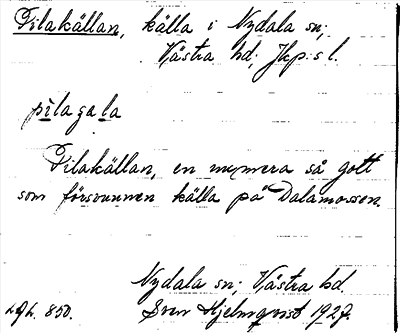 Pilakällan, källa i Nydala sn;
Västra hd; Jkp:s l.
pilagala
Pilakällan, en numera så gott
som försvunnen källa på Dalamossen.
Nydala sn; Västra hd.
Sven Hjelmqvist 1927.
850.